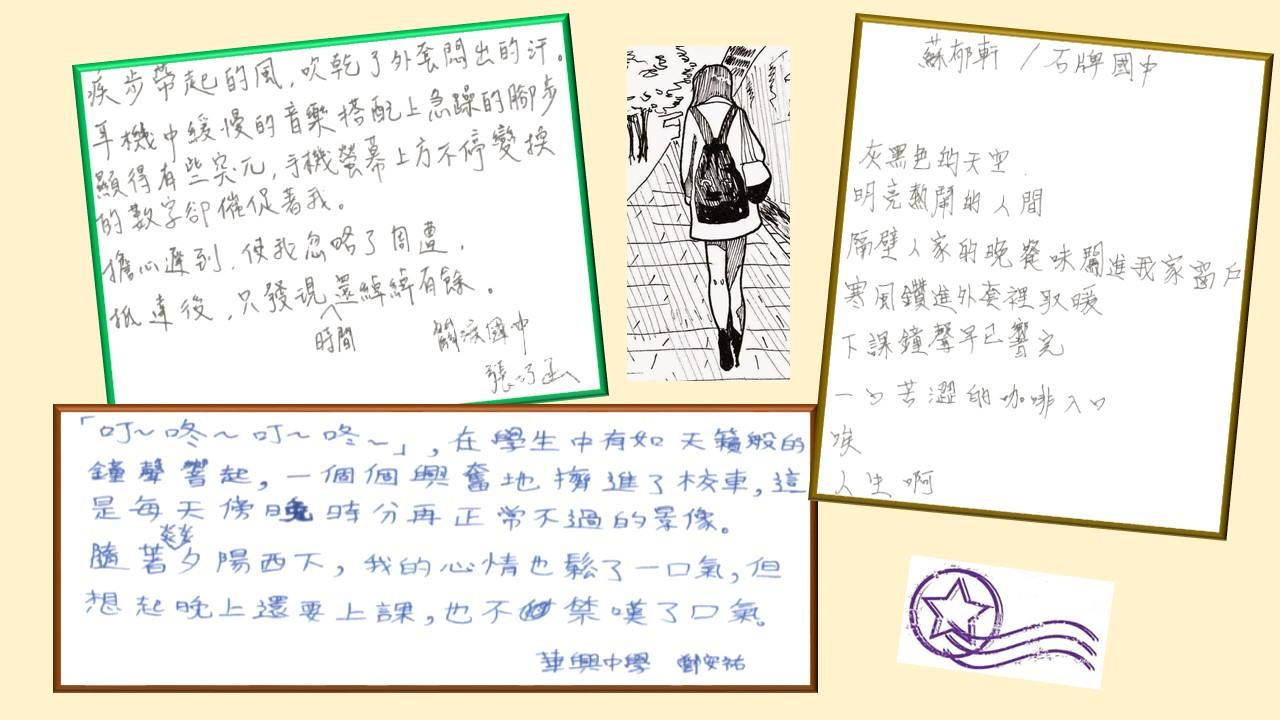 疾步帶起的風,吹乾了外套悶出的汗。
耳機中緩慢的音樂搭配上急躁的腳步
顯得有些突元,手機螢幕上方不停變換
的數字卻催促著我。
擔心遲到,使我忽略了周遭,
抵達後,只發現還綽綽有餘。
時間
國中
張巧函
蘇郁軒 / 石牌國中
灰黑色的天空.
明亮熱鬧的人間
隔壁人家的晚餐味闖進我家窗戶
寒風鑽進外套裡取暖
下課鐘聲早已響完
一口苦澀的咖啡入口
唉
人生啊
「叮~咚~叮~咚~」,在學生中有如天籟般的
鐘聲響起,一個個興奮地擠進了校車,這
是每天傍晚時分再正常不過的景像。
隨著炎炎夕陽西下,我的心情也鬆了一口氣,但
想起晚上還要上課,也不禁嘆了口氣。
華興中學 鄭安祐